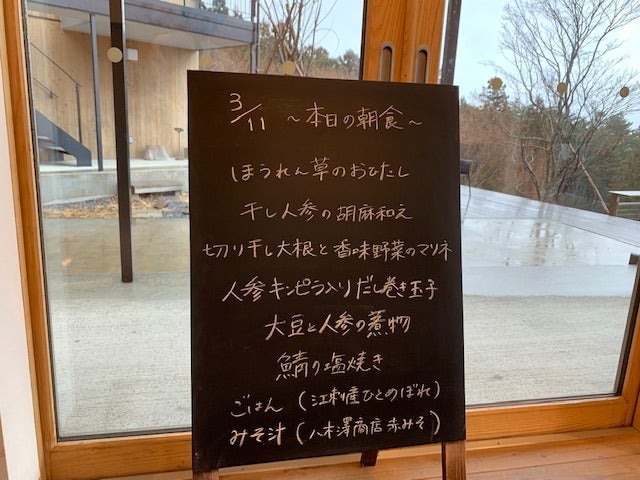 3/11 ～本日の朝食～
ほうれん草のおひたし
干し人参の胡麻和え
切り干し大根と香味野菜のマリネ
人参キンピラ入りだし巻き玉子
大豆と人参の煮物
鯖の塩焼き
ごはん（江刺産ひとめぼれ）
みそ汁（八木澤商店赤みそ）